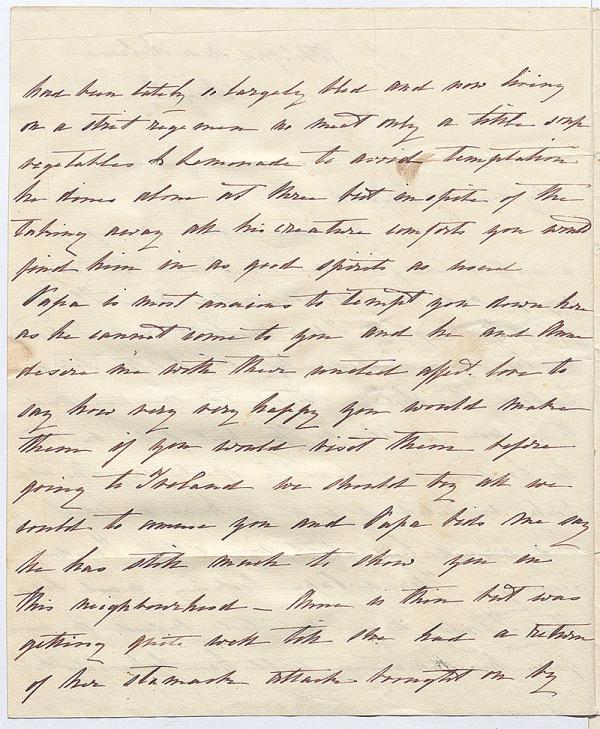 had been lately so largely bled and now living
on a strict regemen no meat only a little soup
vegetables & Lemonade to avoid temptation
he dines alone at three but inspite of the
taking away all his creature comforts you would
find him in as good spirits as usual
Papa is most anxious to tempt you down here
as he cannot come to you and he and Anne
desire me with their united affect. love to
say how very very happy you would make
them if you would visit them before
going to Ireland we should try all we
could to amuse you and Papa bids me say
he has still much to show you in
this neighbourhood – Anne is thin but was
getting quite well till she had a return
of her stomach attack brought on by